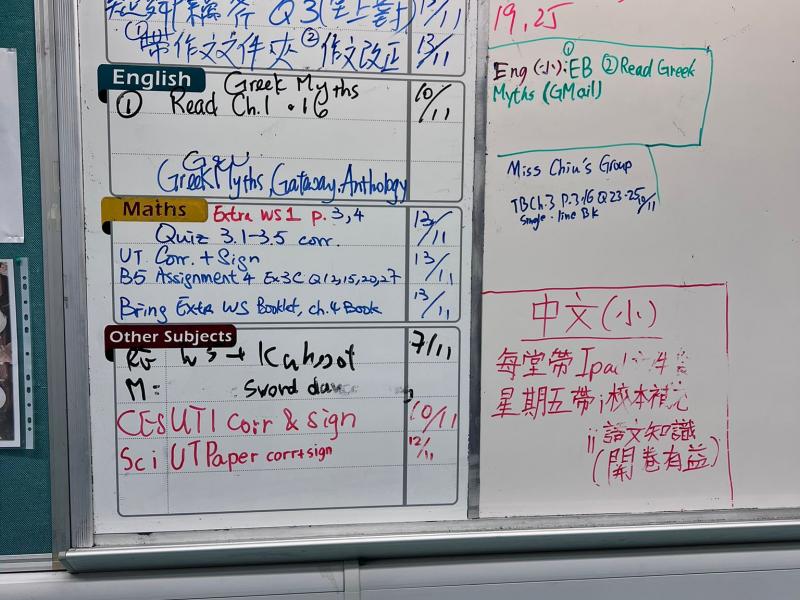 Q3(堂上對) 13/11
①帶作文文件夾 ②作文改正 13/11
English
① Read Ch.1 · 16 10/11
Greek Myths
Greek Myths, Gateway, Anthology
Maths
Extra WS1 p. 3,4 13/11
Quiz 3.1-3.5 corr.
UT Corr. + Sign 13/11
B5 Assignment 4 Ex3C Q12,15,20,27
Bring Extra WS Booklet, ch.4 Book 13/11
Other Subjects
WS + Kahoot 7/11
M= Sword
CES UT1 Corr & sign 10/11
Sci UT Paper corr+sign 12/11
19, 25
Eng (小): ①EB ②Read Greek
Myths (GMail)
Miss Chiu's Group
TB Ch.3 P.3·16 Q23-25 10/11
Single-line Bk
中文(小)
每堂帶 Ipad
星期五帶 i 校本補充
ii 語文知識
(開卷有益)